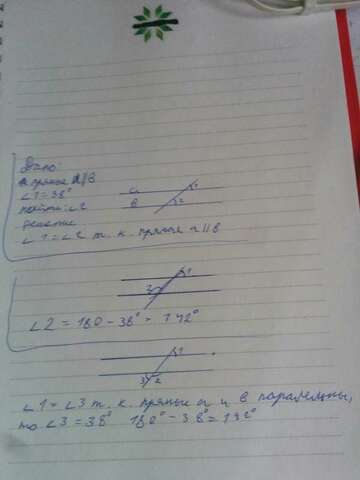 Дано:
прямые a||B
∠1=38°
найти: ∠2
a 1
B 2
решение
∠1=∠2 т. к. прямые a||b
1
3 2
∠2 = 180 - 38° = 142°
1
3 2
∠1=∠3 т. к. прямые a и в паралельны,
то ∠3=38° 180° - 38°=142°